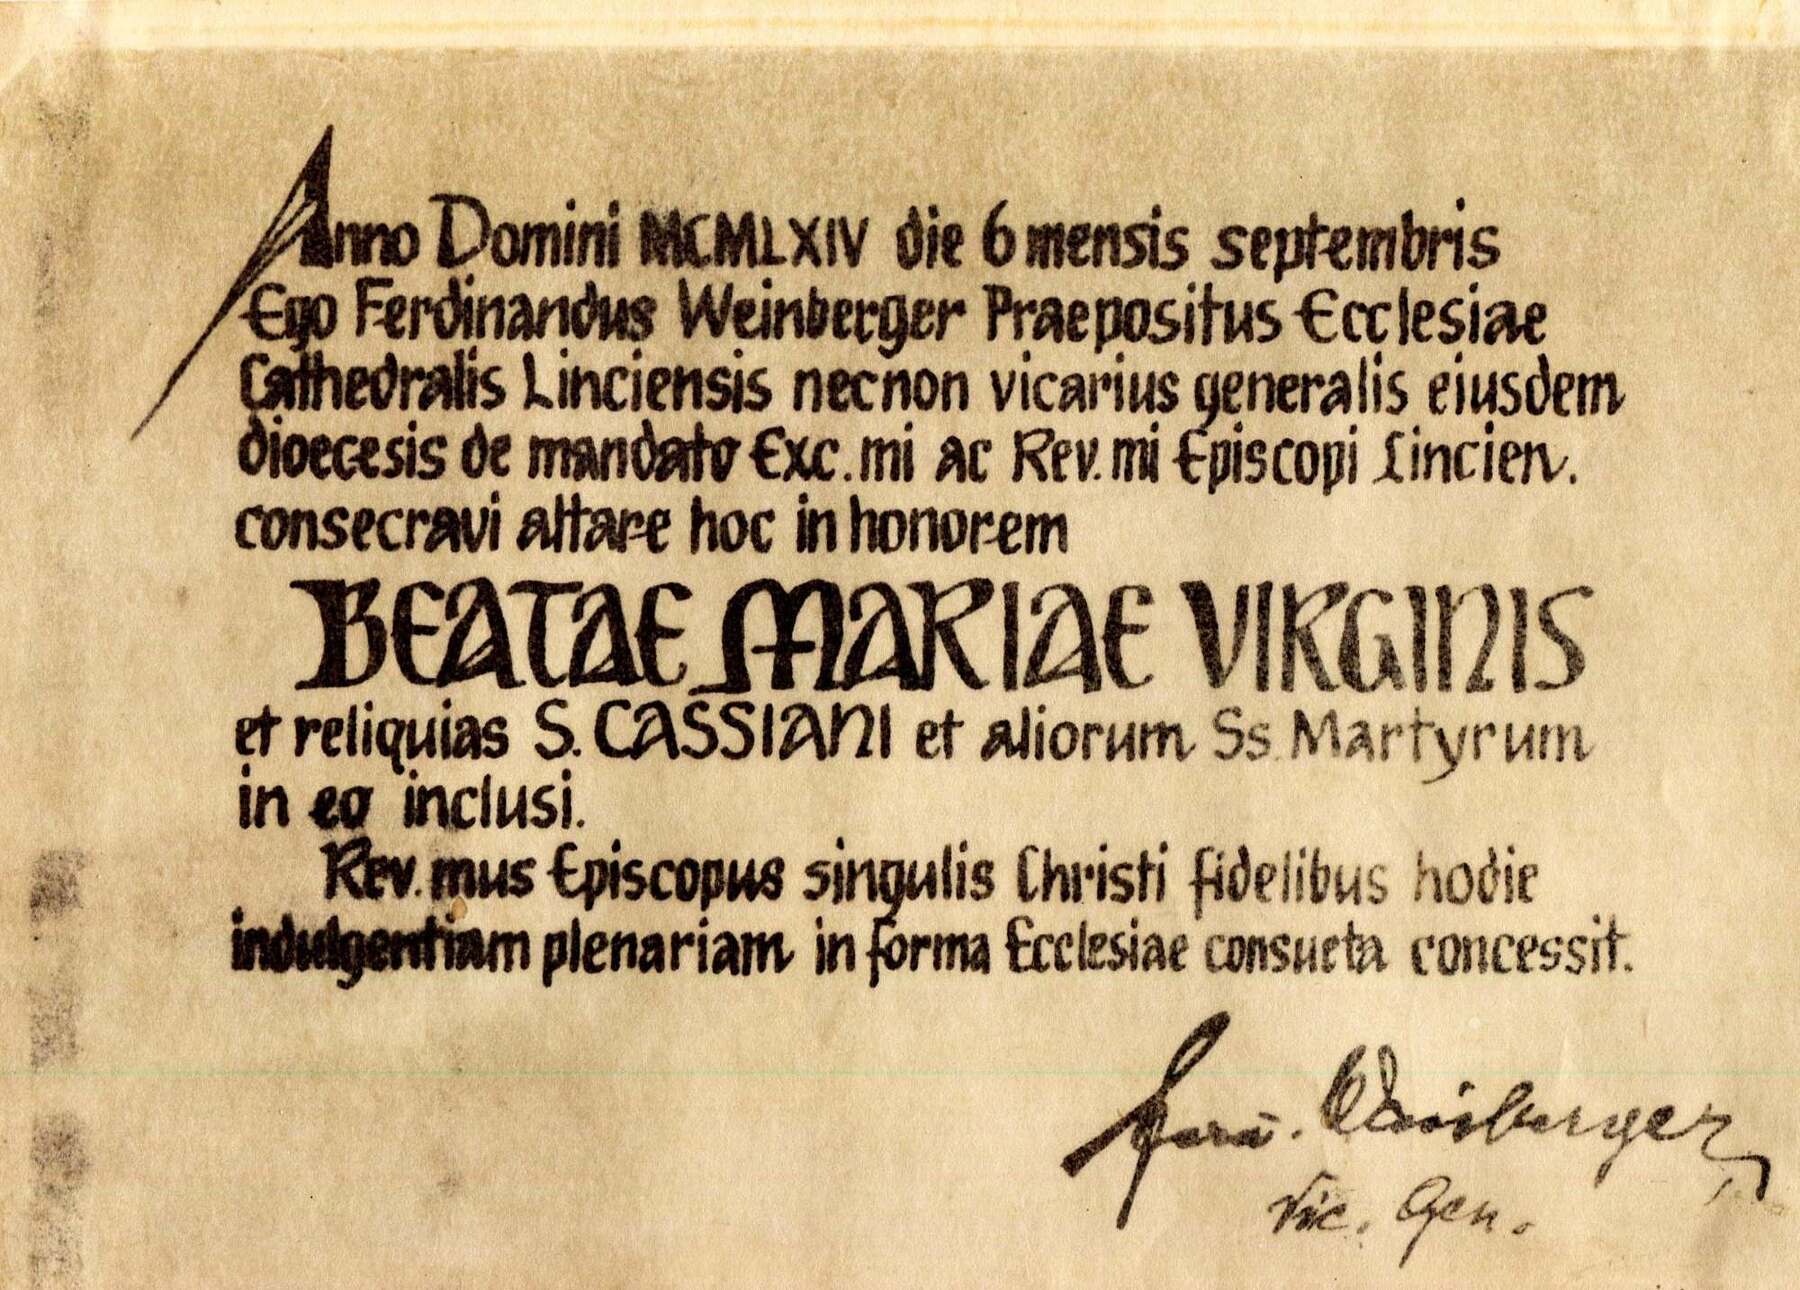 Anno Domini MCMLXIV die 6 mensis septembris
Ego Ferdinandus Weinberger Praepositus Ecclesiae
Cathedralis Linciensis necnon vicarius generalis eiusdem
dioecesis de mandato Exc.mi ac Rev.mi Episcopi Lincien.
consecravi altare hoc in honorem
BEATAE MARIAE VIRGINIS
et reliquias S. CASSIANI et aliorum Ss. Martyrum
in eo inclusi.
Rev.mus Episcopus singulis Christi fidelibus hodie
indulgentiam plenariam in forma Ecclesiae consueta concessit.
Weinberger
Vic. Gen.